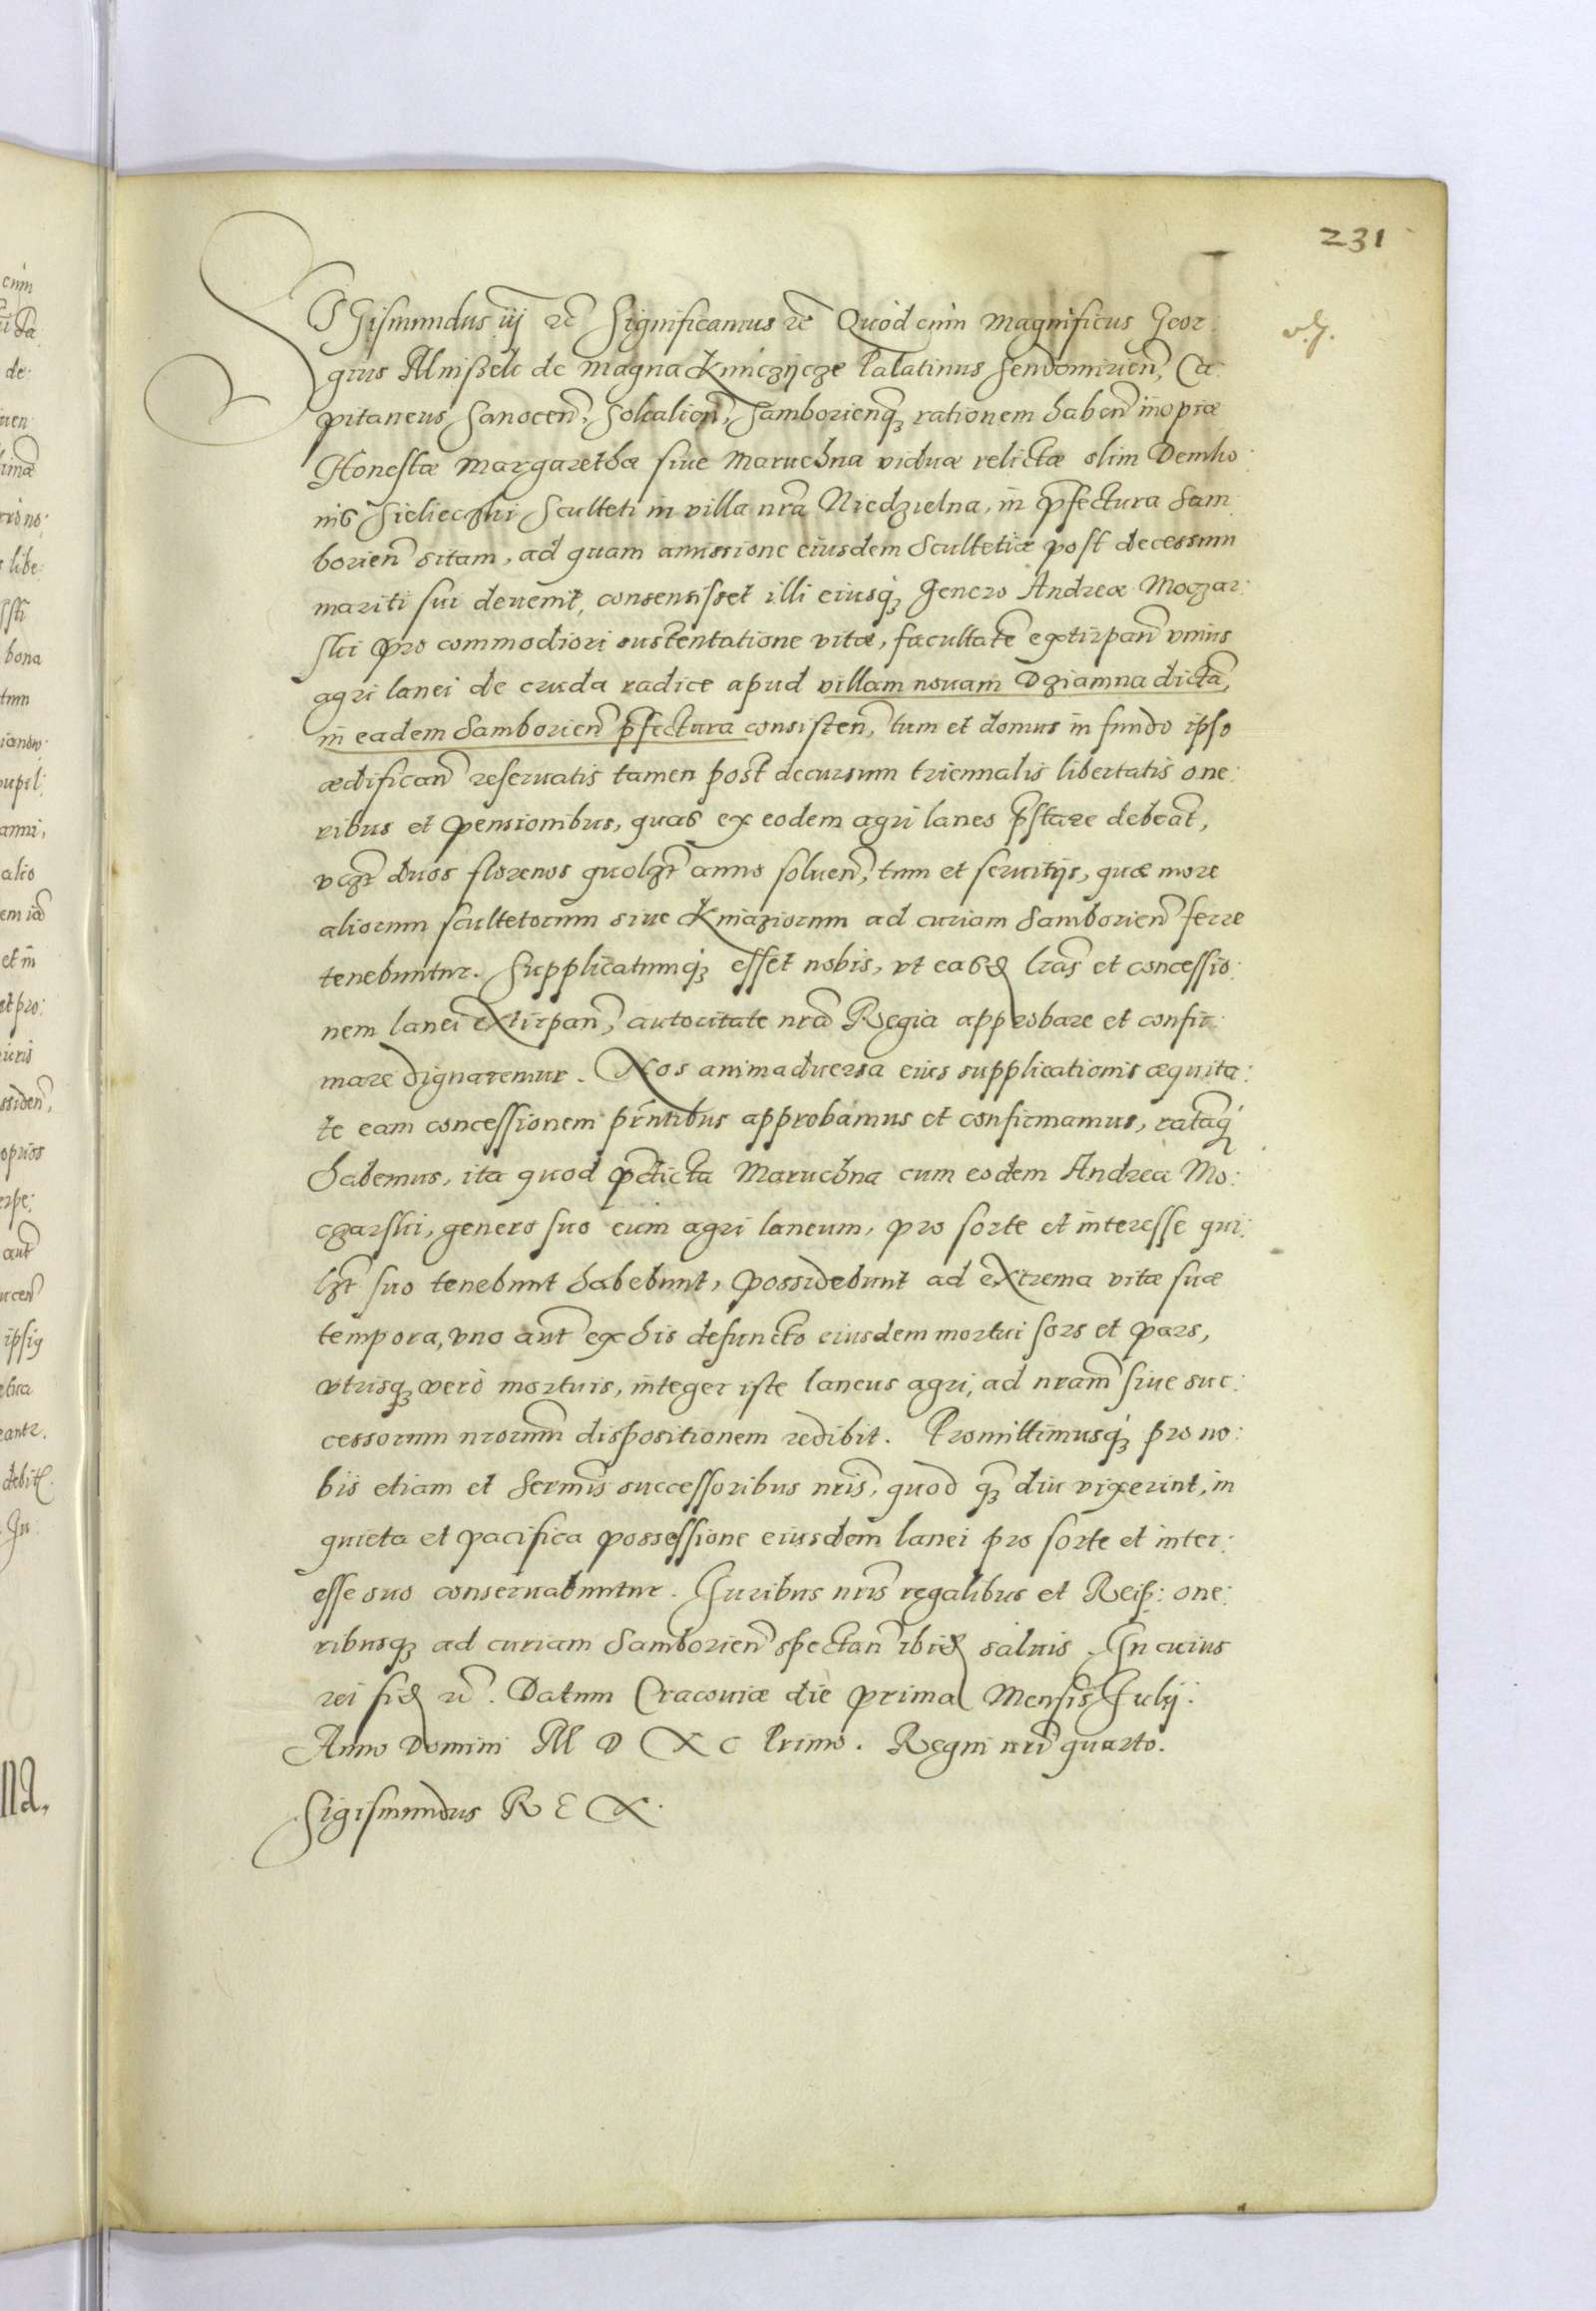 231
SIGismundus iij rc̃ Significamus rc̃ Quòd cùm Magnificus Geor:
gius Mnißek de magna Kunczijcze Palatinus Sendomirien̄, Ca:
pitaneus Sanocen̄, Sokalien̄, Samborienq́ꝫ rationem haben̄ inopiæ
Honestæ Margarethæ siue Maruchna viduæ relictæ olim Demko:
nis Sielieczki Sculteti in villa nr̃a Niedzielna, in p̄fectura Sam:
borien̄ sitam, ad quam amissione eiusdem Scultetiæ post decessum
mariti sui deuenit, consensisset illi eiusq́ꝫ genero Andreæ Moczar:
ski pro commodiori sustentatione vitæ, facultatē extirpan̄ vnius
agri lanei de cruda radice apud villam nouam Dziamna dictā,
in eadem Samborien̄ p̄fectura consisten̄, tum et domus in fundo ipso
ædifican̄ reseruatis tamen post decursum triennalis libertatis one:
ribus et pensionibus, quas ex eodem agri laneo p̄stare debeāt,
vꝫt duos florenos quolꝫt anno soluen̄, tum et seruitijs, quæ more
aliorum scultetorum siue Kniaziorum ad curiam Samborien̄ ferre
tenebuntur. Supplicatumq́ꝫ esset nobis, vt easd̄ lr̃as et concessio:
nem lanei extirpan̄, autoritate nr̃a Regia approbare et confir:
mare dignaremur. Nos animaduersa eius supplicationis æquita:
te eam concessionem pr̄ntibus approbamus et confirmamus, ratāq́
habemus, ita quod p̄dicta Maruchna cum eodem Andrea Mo:
czarski, genero suo eum agri laneum, pro sorte et interesse qui:
lꝫt suo tenebunt habebunt, possidebunt ad extrema vitæ suæ
tempora, vno aut̄ ex his defuncto eiusdem mortui sors et pars,
vtrisqꝫ verò mortuis, integer iste laneus agri, ad nr̃am siue suc:
cessorum nr̃orum dispositionem redibit. Promittimusq́ꝫ pro no:
bis etiam et Serm̄is successoribus nr̃is, quod qꝫ diu vixerint, in
quieta et pacifica possessione eiusdem lanei pro sorte et inter:
esse suo conseruabuntur. Iuribus nr̃is regalibus et Reip̄: one:
ribusqꝫ ad curiam Samborien̄ spectan̄ ibid̄ saluis. In cuius
rei fid̄ rc̃. Datum Cracouiæ die prima Mensis Iulij.
Anno Domini M D X C Primo. Regni nr̃i quarto.
Sigismundus R E X.